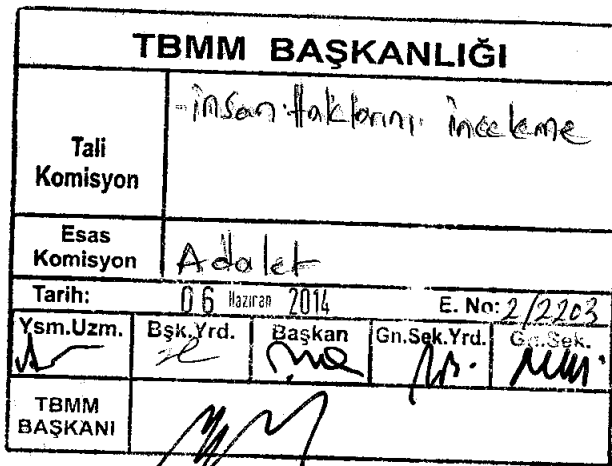 TBMM BAŞKANLIĞI
Tali Komisyon
-İnsan Haklarını İnceleme
Esas Komisyon
Adalet
Tarih: 06 Haziran 2014 E. No: 2/2203
Ysm.Uzm. Bşk.Yrd. Başkan Gn.Sek.Yrd. Gn.Sek.
TBMM BAŞKANI